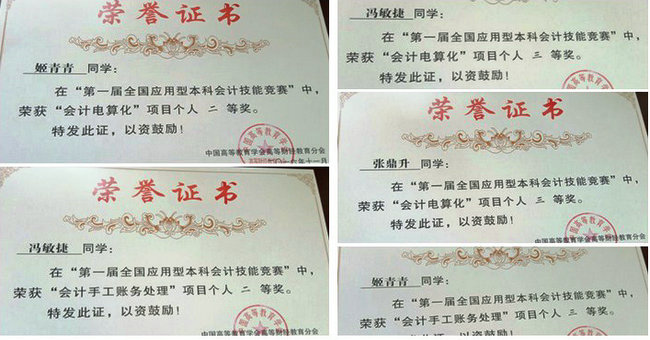 荣誉证书
姬青青 同学：
在“第一届全国应用型本科会计技能竞赛”中，
荣获“会计电算化”项目个人 二 等奖。
特发此证，以资鼓励！
中国高等教育学会高等财经教育分会
荣誉证书
冯敏捷 同学：
在“第一届全国应用型本科会计技能竞赛”中，
荣获“会计手工账务处理”项目个人 二 等奖。
特发此证，以资鼓励！
中国高等教育学会高等财经教育分会
冯敏捷 同学：
在“第一届全国应用型本科会计技能竞赛”中，
荣获“会计电算化”项目个人 三 等奖。
特发此证，以资鼓励！
荣誉证书
张鼎升 同学：
在“第一届全国应用型本科会计技能竞赛”中，
荣获“会计电算化”项目个人 三 等奖。
特发此证，以资鼓励！
中国高等教育学会高等财经教育分会
姬青青 同学：
在“第一届全国应用型本科会计技能竞赛”中，
荣获“会计手工账务处理”项目个人 三 等奖。
特发此证，以资鼓励！